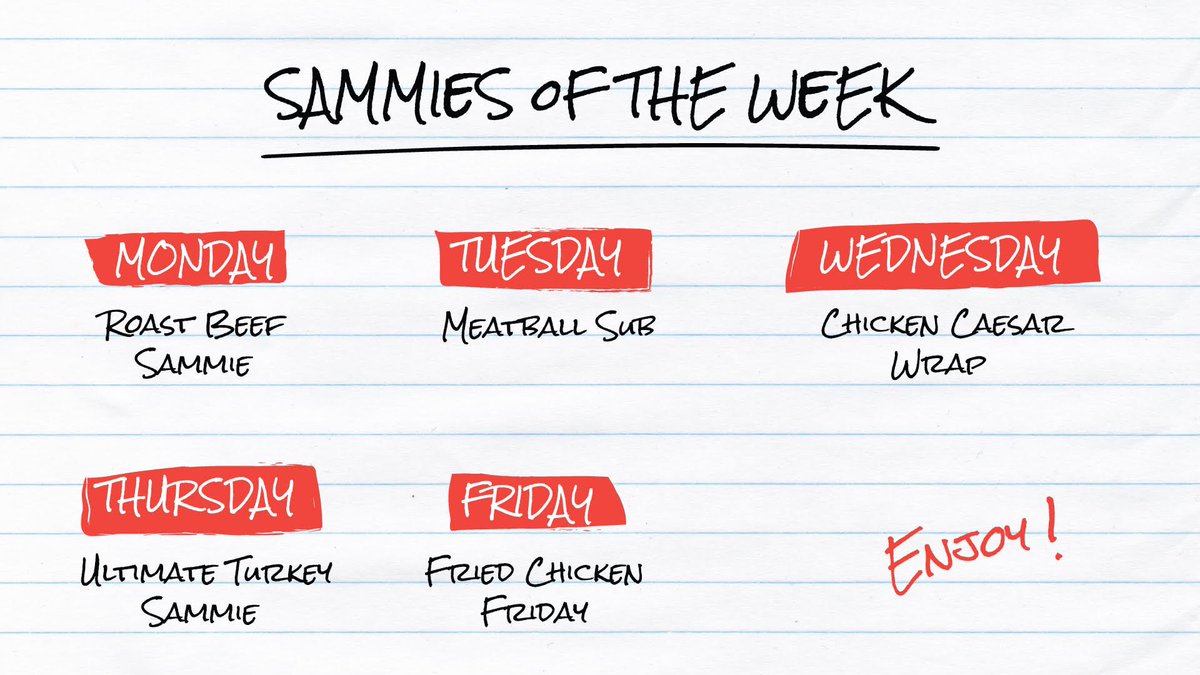 SAMMIES OF THE WEEK
MONDAY
ROAST BEEF
SAMMIE
TUESDAY
MEATBALL SUB
WEDNESDAY
CHICKEN CAESAR
WRAP
THURSDAY
ULTIMATE TURKEY
SAMMIE
FRIDAY
FRIED CHICKEN
FRIDAY
ENJOY!